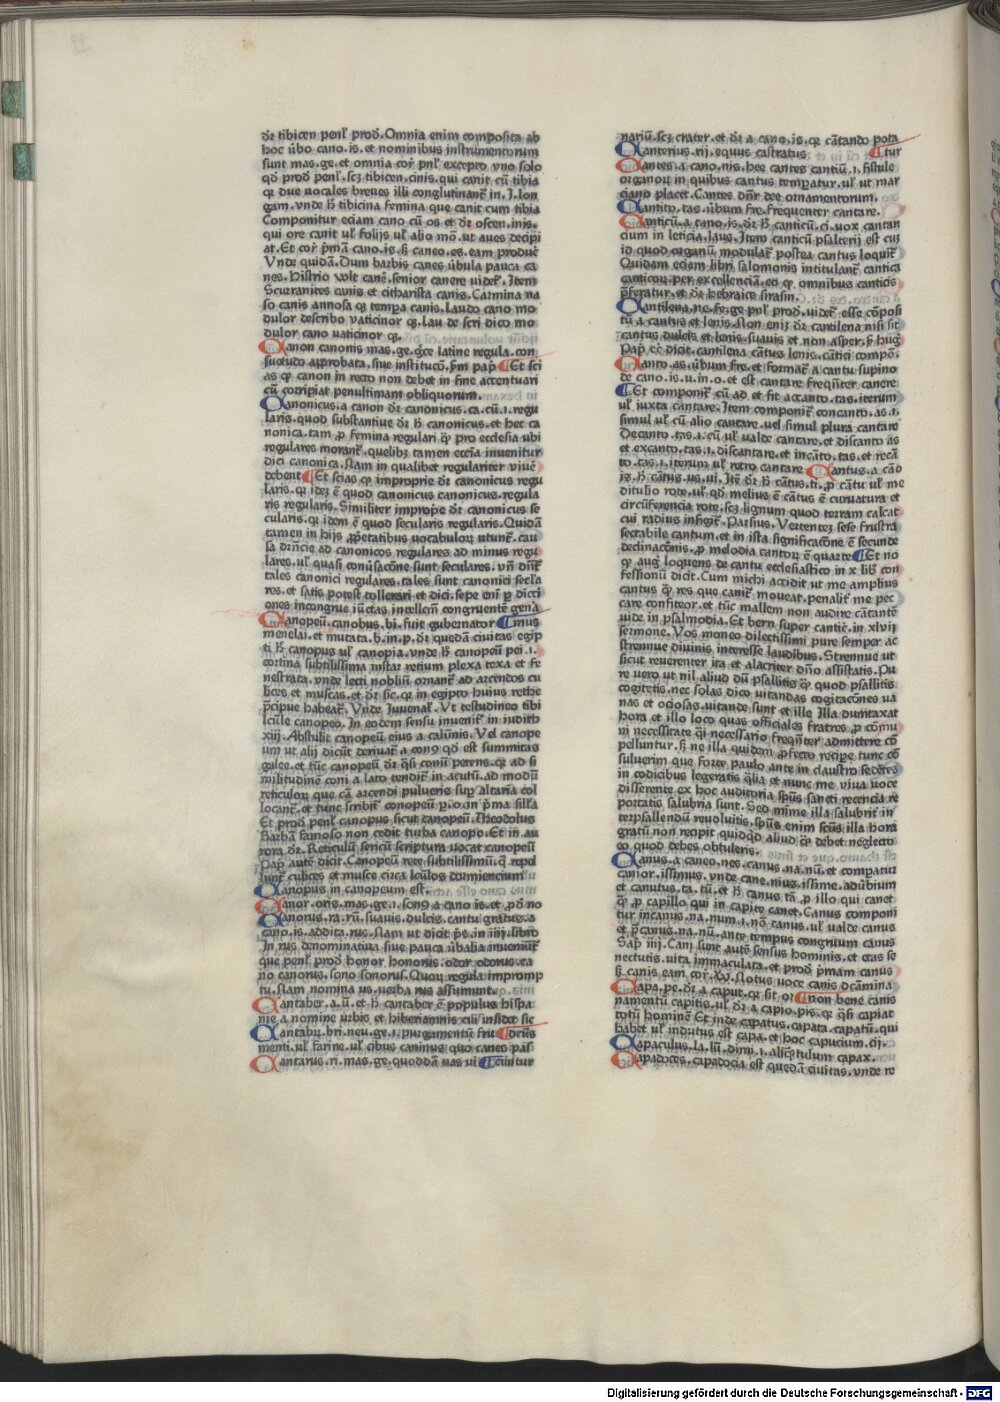 dr̃ tibicen penl̃ prod̃. Omnia enim composita ab
hoc v̉bo cano.is. et nominibus instrumentorum
sunt mas.ge. et omnia cor̃ pnl̃ excepto vno solo
qd̃ prod̃ penl̃. scz tibicen.cinis. qui canit cũ tibia
qr due uocales breues illi conglutinant̃ in.i. lon
gam. vnde h̃ tibicina femina que canit cum tibia
Componitur eciam cano cũ os et dr̃ oscen.inis.
qui ore canit ul̃ folijs ul̃ alio mõ. ut aues decipi
at. Et cor̃ pͥmã cano.is. sʒ caneo.es. eam producͥt
Vnde quidã. Dum barbis canes v̉bula pauca ca
nes. Histrio wlt canẽ. senior canere uidet̃. Item
Scuranites canis et citharista canis. Carmina na
so canis annosa qʒ tempa canis. Laudo cano mo
dulor describo vaticinor qʒ. Lau de scri dico mo
dulor cano uaticinor qʒ.
Canon canonis mas.ge. gͥce latine regula. con
suetudo approbata. siue institucõ. scͫm pap̃ Et sci
as qʒ canon in recto non debet in fine accentuari
cũ corripiat penultimam obliquorum.
Canonicus.a canon dr̃ canonicus.ca.cũ.i.regu
laris. quod substantiue dr̃ h̃ canonicus. et hec ca
nonica. tam ꝓ femina regulari qͣʒ pro ecclesia ubi
regulares morant̃. quelibʒ tamen ecc̃ia inuenitur
dici canonica. Nam in qualibet regulariter viuẽ
debent Et scias qʒ improprie dr̃ canonicus regu
laris. qr idez ẽ quod canonicus canonicus. regula
ris regularis. Similiter imprope dr̃ canonicus se
cularis. qr idem ẽ quod secularis regularis. Quidã
tamen in hijs ꝓpͥetatibus uocabuloꝝ utunt̃. cau
sa dr̃ncie ad canonicos regulares ad minus regu
lares. ul̃ quasi conũsac̃one sunt seculares. vñ dñt̃
tales canonici regulares. tales sunt canonici secl̃a
res. et satis potest tollerari et dici. sepe eni ꝑ dicci
ones incongrue iũctas intellc̃m congruentẽ genã
Canopeũ. canobus.bi. fuit gubernator mus
menelai. et mutata.b.in.p. dr̃ quedã ciuitas egip
ti h̃ canopus ul̃ canopia. vnde h̃ canopeũ pei.i.
cortina subtilissima instar retium plexa texa et fe
nestrata. vnde lecti nobiliũ ornant̃ ad arcendos cu
lices et muscas. et dr̃ sic. qr in egipto huius rethe
pͥcipue habeat̃. Vnde Juuenal̃. Vt testudineo tibi
lcũle canopeo. In eodem sensu inuenit̃ in iudith
xiij. Abstulit canopeũ eius a calũnis. Vel canope
um ut alij dicũt deriuat̃ a con9 qd̃ est summitas
galee. et tũc canopeũ dr̃ q̃si conũ petens. qr ad si
militudinẽ coni a lato tendit̃ in acutũ. ad modũ
reticuloꝝ que cã arcendi pulueris supͬ altaria col
locant̃. et tunc scribit̃ conopeũ p.o.in pͥma sill̃a
Et prod̃ penl̃ canopus sicut canopeũ. Theodolus
Barbã famoso non cedit turba canopo. Et in au
rora dr̃. Reticulũ sericũ scriptura uocat canopeũ
Pap̃ autẽ dicit. Canopeũ rete subtilissimũ. qͣ repel
lunt̃ culices et musce circa lcũlos dormiencium
Canopus in canopeum est.
Canor.oris.mas.ge.i.son9 a cano is. et ꝓd̃ no
Canorus.ra.rũ. suauis dulcis. cantu gratus. a
cano.is. addita.rus. Nam ut dicit pͥs. in iiij.libro
In rus denominatiua siue pauca v̉balia inueniũt̃
que penl̃ prod̃ honor honorus. odor odorus. ca
no canorus. sono sonorus. Quoꝝ regula impromp
tu. Nam nomina us. uerba rus assumunt.
Cantaber.a.ũ. et h̃ cantaber ẽ populus hispa
nie a nomine urbis et hiberiamnis cui insidet sic
Cantabꝝ.bri.neu.ge.i. purgamentũ fru dictus
menti. ul̃ farine. ul̃ cibus caninus quo canes pas
Cantarus.ri.mas.ge. quoddã uas ui cuntur
nariũ. scz crater. et dr̃ a cano.is. qr cãtando pota
Canterius.rij. equus castratus tur
Cantes.a cano.nis. hee cantes cantiũ.i. fistule
organoꝝ in quibus cantus tempatur. ul̃ ut mar
ciano placet. Cantes dñr dee ornamentorum.
Cantito.tas. v̉bum fre. frequenter cantare.
Canticũ.a cano.is. dr̃ h̃ canticũ.ci. uox cantan
cium in leticia. laus. Item canticũ psalterij est cuͥ
id quod organũ modulat̃. postea cantus loquit̃
Quidam eciam libri salomonis intitulant̃ cantica
canticoꝝ. per excellenciã. eo qʒ omnibus canticis
pͥferatur. et dr̃ hebraice sirasin.
Cantilena.ne.fe.ge pnl̃ prod̃. uidet̃ esse cõposi
tũ a cantus et lenis. Non enĩ dr̃ cantilena nisi sit
cantus dulcis et lenis. suauis et non asper. sʒ hug̃
Pap̃ eẽ dicit. cantilena cãtus lenis. cãtici compõ.
Canto.as. v̉bum fre. et format̃ a cantu supino
de cano.is.u.in.o. et est cantare freqñter canere
Et componit̃ cũ ad et fit accanto.tas. iterum
ul̃ iuxta cantare. Item componit̃ concanto.as.i.
simul ul̃ cũ alio cantare. uel simul plura cantare
Decanto.tas.i. cũ ul̃ ualde cantare. et discanto as
et excanto.tas.i. discantare. et incãto.tas. et recã
to.tas.i. iterum ul̃ retro cantare Cantus.a cãō
is. h̃ cãtus.us.ui. Itẽ dr̃ h̃ cãtus.ti. ꝓ cãtu ul̃ me
ditulio rote. ul̃ qd̃ melius ẽ cãtus ẽ curuatura et
circũferencia rote. scz lignum quod terram calcat
cui radius infigit̃. Parsius. Vertentez sese frustra
sectabile cantum. et in ista significac̃one ẽ secunde
declinac̃onis. ꝓ melodia cantoꝝ ẽ quarte Et no
qʒ aug̃ loquens de cantu ecclesiastico in x libͦ con
fessionũ dicit. Cum michi accidit ut me amplius
cantus qͣʒ res que canit̃ moueat. penalit̃ me pec
care confiteor. et tũc mallem non audire cãtantẽ
uide in psalmodia. Et bern̉ super cantic̃. in xlvij
sermone. Vos moneo dilectissimi pure semper ac
strennue diuinis interesse laudibus. Strennue ut
sicut reuerenter ita et alacriter dño assistatis. Pu
re vero ut nil aliud dũ psallitis qͣʒ quod psallitis
cogitetis. nec solas dico vitandas cogitac̃ones va
nas et ociosas. uitande sunt et ille Illa dumtaxat
hora et illo loco quas officiales fratres ꝓ cõmu
ni necessitate qͣi necessario freqñter admittere cõ
pelluntur. sʒ ne illa quidem ꝓfecto recipe tunc cõ
suluerim que forte paulo ante in claustro sedẽtes
in codicibus legeratis q̃lia et nunc me viua uoce
disserente ex hoc auditoria spũs sancti recencia re
portatis salubria sunt. Sed mĩme illa salubrit̃ in
terpsallendũ reuoluitis. spũs enim scũs illa hora
gratũ non recipit quidqͥd aliud qͣʒ debet neglecto
eo quod debes obtuleris.
Canus.a caneo.nes. canus.na.nũ. et compatur
canior.issimus. vnde cane.nius.issime. adubium
et canutus.ta.tũ. et h̃ canus tã ꝓ illo qui canet
qͣʒ ꝓ capillo qui in capite canet. Canus componi
tur incanus.na.num.i. nõ canus. ul̃ ualde canus
et pͥcanus.na.nũ. ante tempus congruum canus
Sap̃ iiij. Cani sunt autẽ sensus hominis. et etas se
nectutis. uita immaculata. et prod̃ pͥmam canus
sʒ canis eam cor̃. Notus uoce canis dc̃amina
Capa.pe. dr̃ a caput. qr sit or non bene canis
namentũ capitis. ul̃ dr̃ a capio.pis. qr q̃si capiat
totũ hominẽ Et inde capatus. capata. capatũ. qui
habet ul̃ indutus est capa. et hoc capucium.cij.
Capaculus.la.lũ. dimi.i. alicͣptulum capax.
Capadoces. capadocia est quedã ciuitas. vnde re
Digitalisierung gefördert durch die Deutsche Forschungsgemeinschaft - DFG